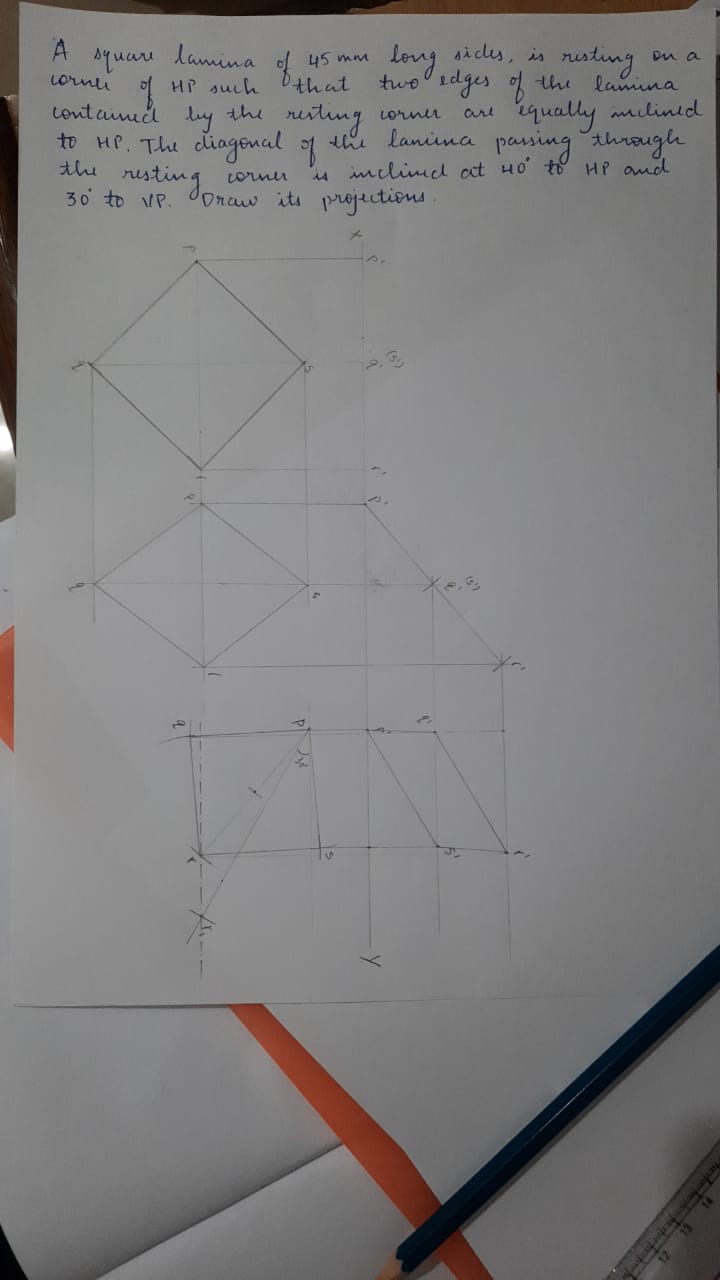 A square lamina of 45 mm long sides, is resting on a
corner of HP such that two edges of the lamina
contained by the resting corner are equally inclined
to HP. The diagonal of the lamina passing through
the resting corner is inclined at 40° to HP and
30° to VP. Draw its projections.
X
p
p'
q
s
q' (s')
r
r'
p
p'
q
s
q' (s')
r
r'
q
p
p'
q'
30°
r
s
s'
r'
r₁
Y
14
13
12